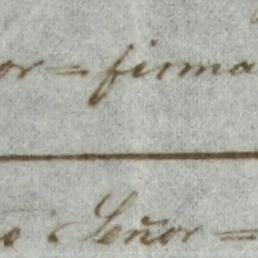 or = firma
s Señor =